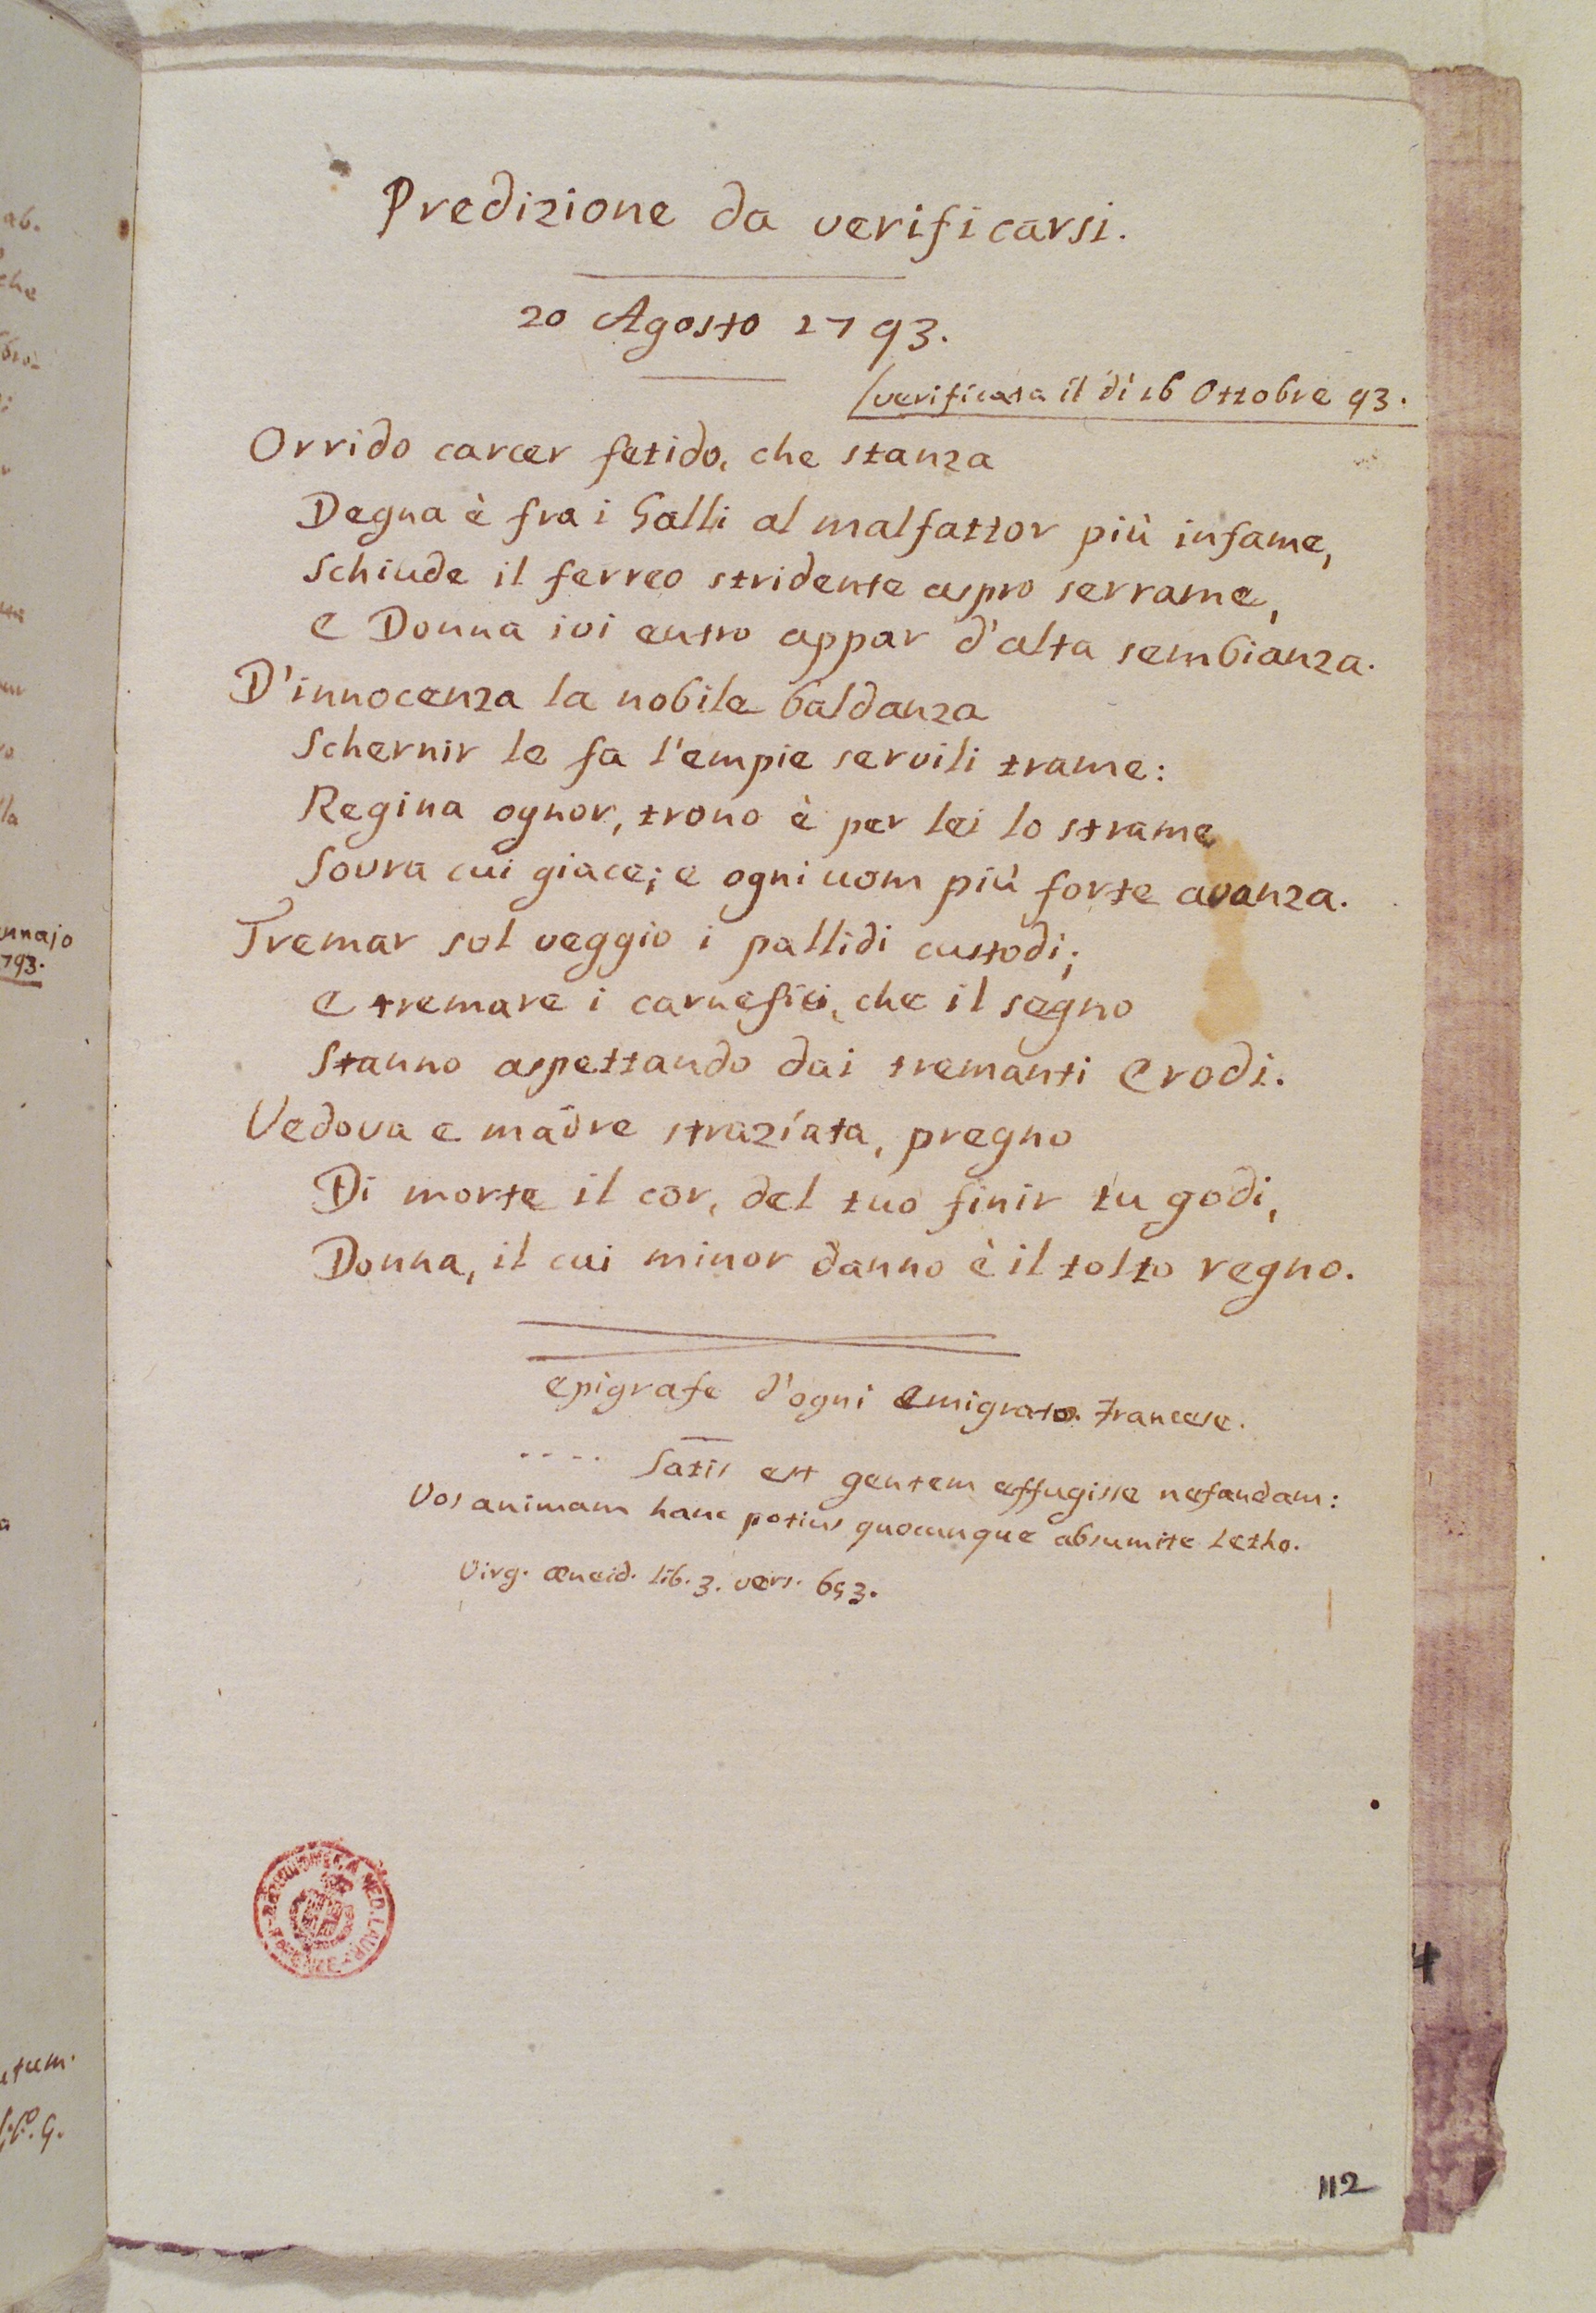 Predizione da verificarsi.
20 Agosto 1793.
verificata il dì 16 Ottobre 93.
Orrido carcer fetido, che stanza
Degna è fra i Galli al malfattor più infame,
Schiude il ferreo stridente aspro serrame,
E Donna ivi entro appar d'alta sembianza.
D'innocenza la nobile baldanza
Schernir le fa l'empie servili trame:
Regina ognor, trono è per lei lo strame
Sovra cui giace; e ogni uom più forte avanza.
Tremar sol veggio i pallidi custodi;
E tremare i carnefici, che il segno
Stanno aspettando dai tremanti Erodi.
Vedova e madre straziata, pregno
Di morte il cor, del tuo finir tu godi,
Donna, il cui minor danno è il tolto regno.
Epigrafe d'ogni Emigrato Francese.
..... Satis est gentem effugisse nefandam:
Vos animam hanc potius quocunque absumite Letho.
Virg. Æneid. lib. 3. vers. 653.
112
ab.
che
nnajo
793.
lla
etum.
4